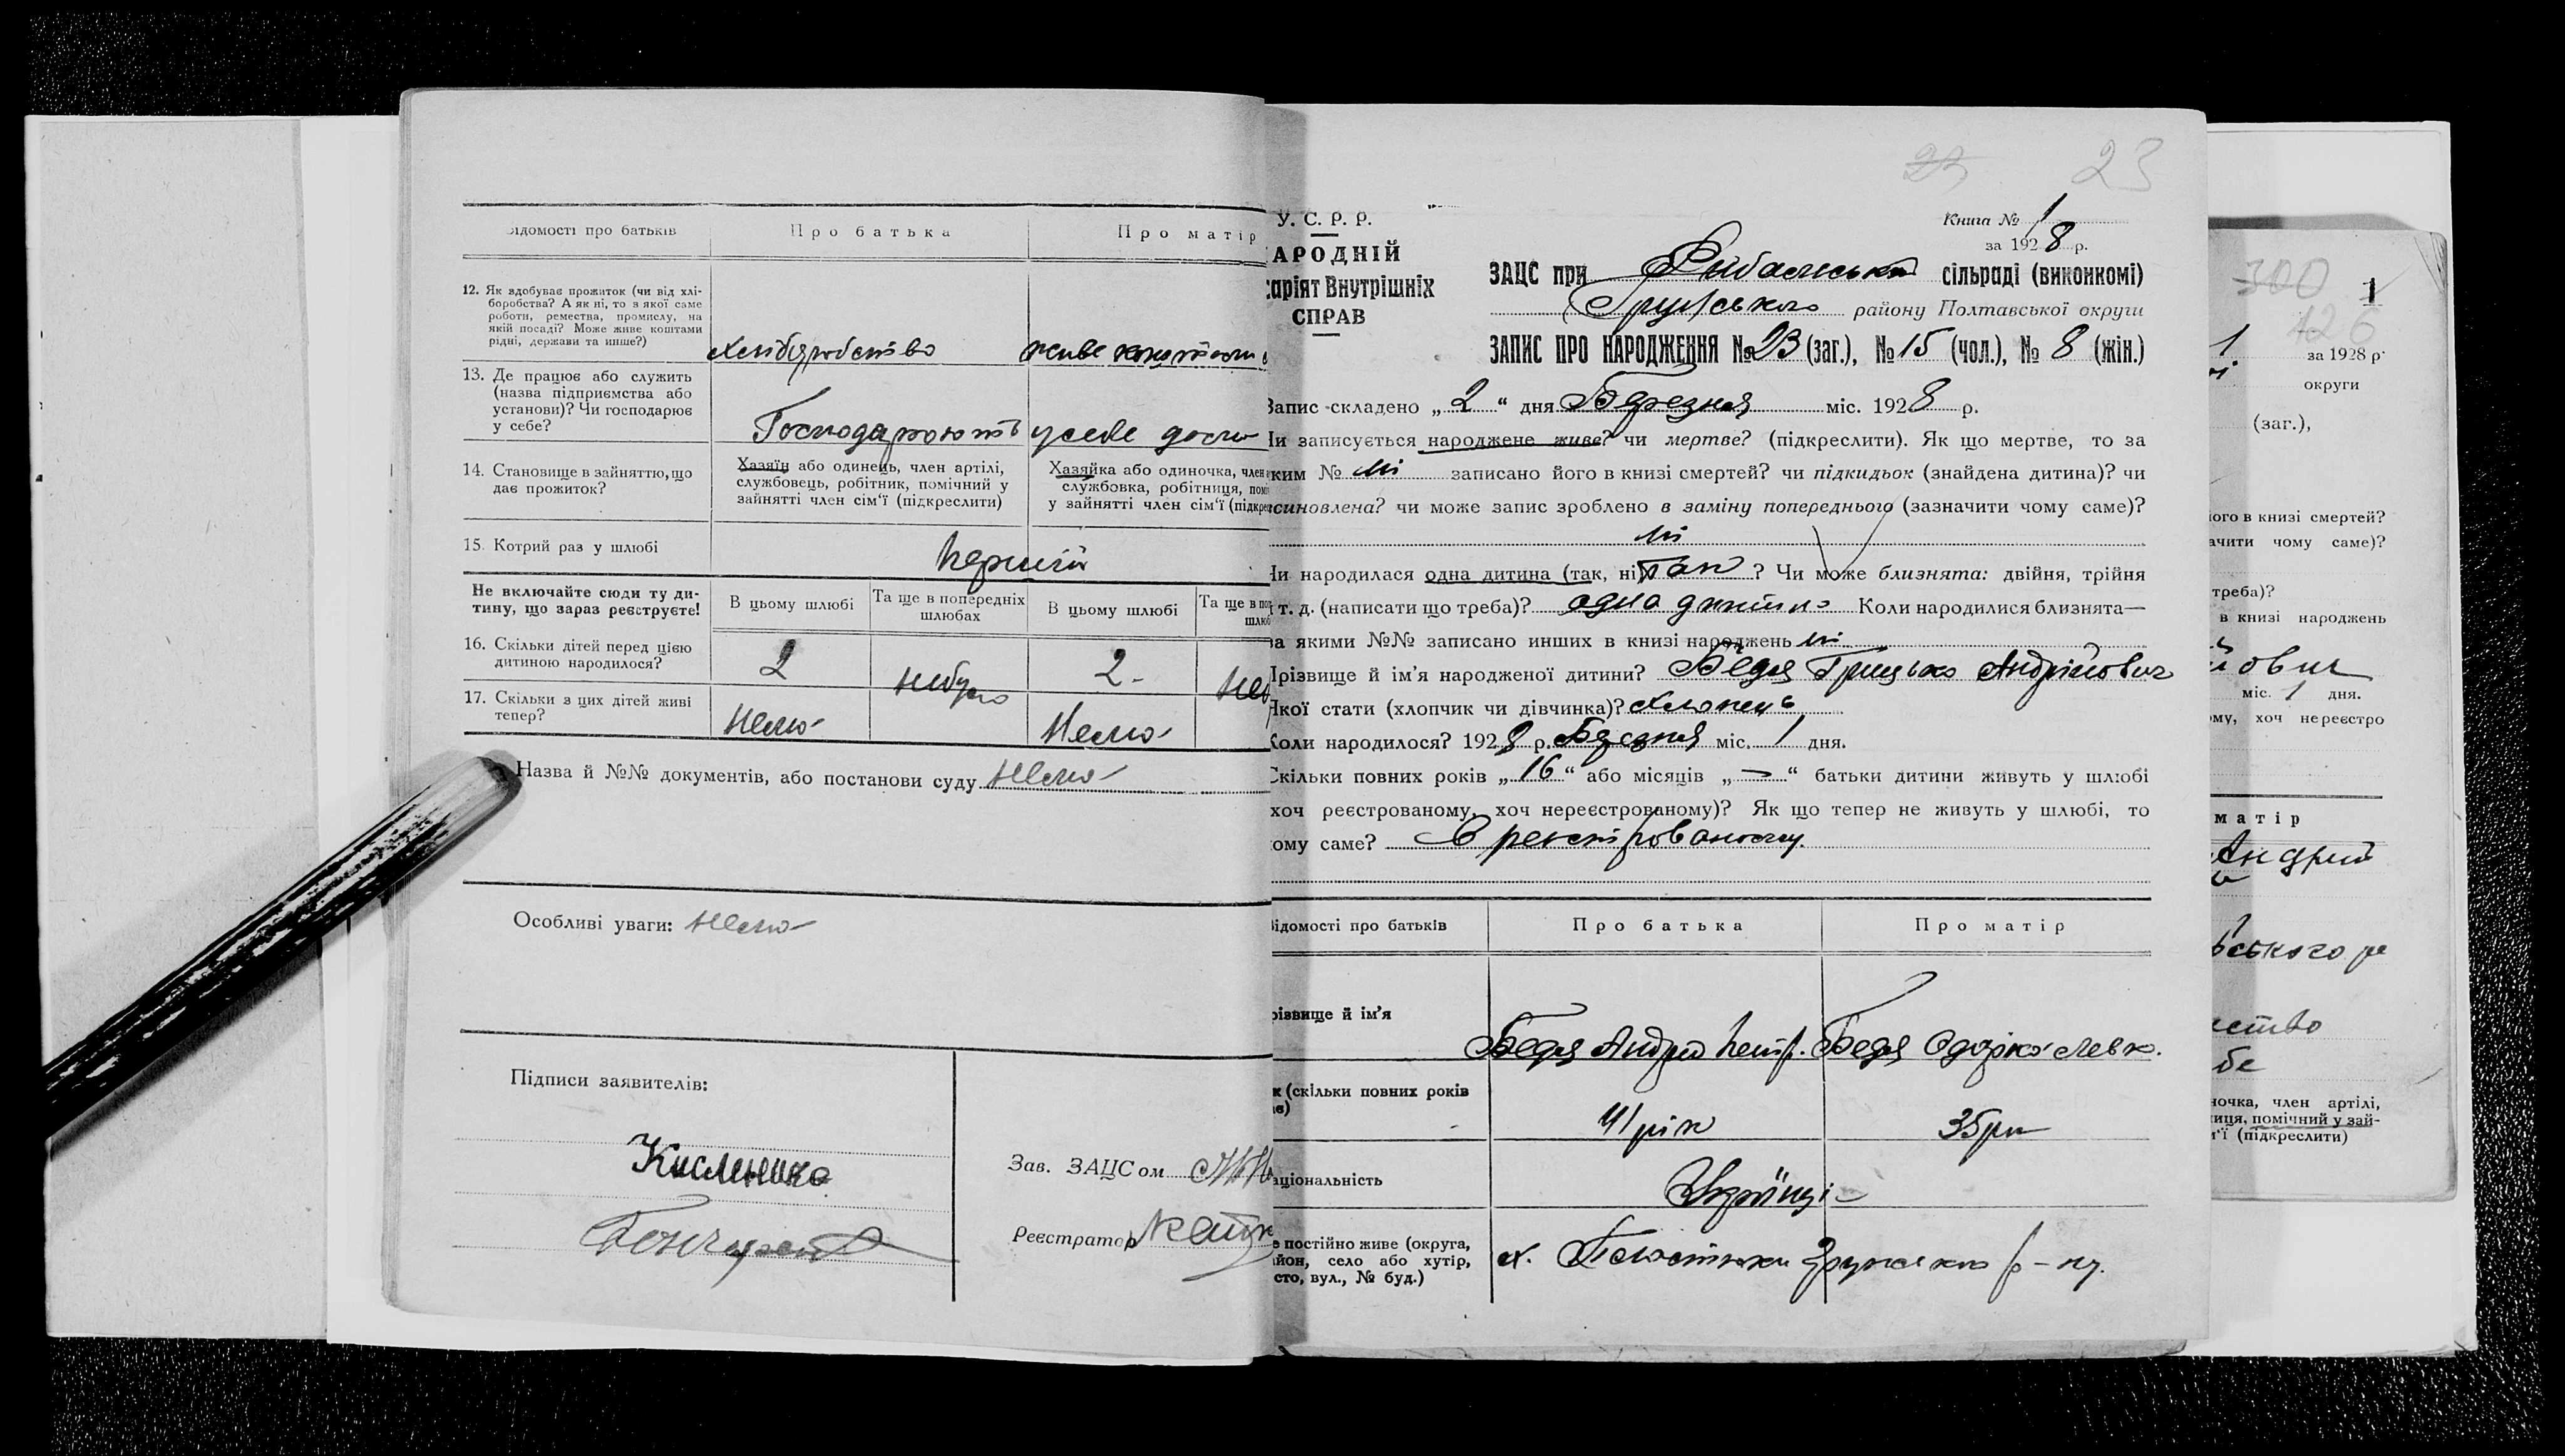 Відомості про батьків
Про батька
Про матір
12. Як здобуває прожиток (чи від хлі-
боробства? А як ні, то з якої саме
роботи, ремества, промислу, на
якій посаді? Може живе коштами
рідні, держави та инше?)
Хліборобство
живе коштами
13. Де працює або служить
(назва підприємства або
установи)? Чи господарює
у себе?
Господарюють у себе дома
14. Становище в зайняттю, що
дає прожиток?
Хазяїн або одинець, член артілі,
службовець, робітник, помічний у
зайнятті член сім'ї (підкреслити)
Хазяйка або одиночка, член
службовка, робітниця, пом
у зайнятті член сім'ї (підкре
15. Котрий раз у шлюбі
Перший
Не включайте сюди ту ди-
тину, що зараз реєструєте!
В цьому шлюбі
Та ще в попередніх
шлюбах
В цьому шлюбі
Та ще в по
шлюб
16. Скільки дітей перед цією
дитиною народилося?
2
небуло
2
17. Скільки з цих дітей живі
тепер?
Нема
Нема
Назва й №№ документів, або постанови суду Нема
Особливі уваги: Нема
Підписи заявителів:
Кисленко
Гончаренко
Зав. ЗАЦСом
Реєстратор
23
У. С. Р. Р.
АРОДНІЙ
аріят Внутрішніх
СПРАВ
Книга № 1
за 1928 р.
ЗАЦС при сільраді (виконкомі)
Грунського району Полтавської округи
ЗАПИС ПРО НАРОДЖЕННЯ № 23 (заг.), № 15 (чол.), № 8 (жін.)
Запис складено „2" дня Березня міс. 1928 р.
Чи записується народжене живе? чи мертве? (підкреслити). Як що мертве, то за
яким № ні записано його в книзі смертей? чи підкидьок (знайдена дитина)? чи
усиновлена? чи може запис зроблено в заміну попереднього (зазначити чому саме)?
ні
Чи народилася одна дитина (так, ні) так? Чи може близнята: двійня, трійня
і т. д. (написати що треба)? одна дитина Коли народилися близнята—
за якими №№ записано инших в книзі народжень ні
Прізвище й ім'я народженої дитини? Бедя Грицько Андрійович
Якої стати (хлопчик чи дівчинка)? Хлопець
Коли народилося? 1928 р. Березня міс. 1 дня.
Скільки повних років „16" або місяців „—" батьки дитини живуть у шлюбі
хоч реєстрованому, хоч нереєстрованому)? Як що тепер не живуть у шлюбі, то
чому саме? В реєстрованому
Відомості про батьків
Про батька
Про матір
різвище й ім'я
Бедя Андрій Петр.
Бедя Одарка Левк.
к (скільки повних років
ає)
41 рік
35 рік
аціональність
Українці
е постійно живе (округа,
айон, село або хутір,
сто, вул., № буд.)
х. р-ну.
300
1
126
за 1928 р.
округи
(заг.),
ого в книзі смертей?
ачити чому саме)?
треба)?
в книзі народжень
йович
міс. 1 дня.
ому, хоч нереєстро
матір
Андрій
ського ра
ство
бе
ночка, член артілі,
иця, помічний у зай-
м'ї (підкреслити)